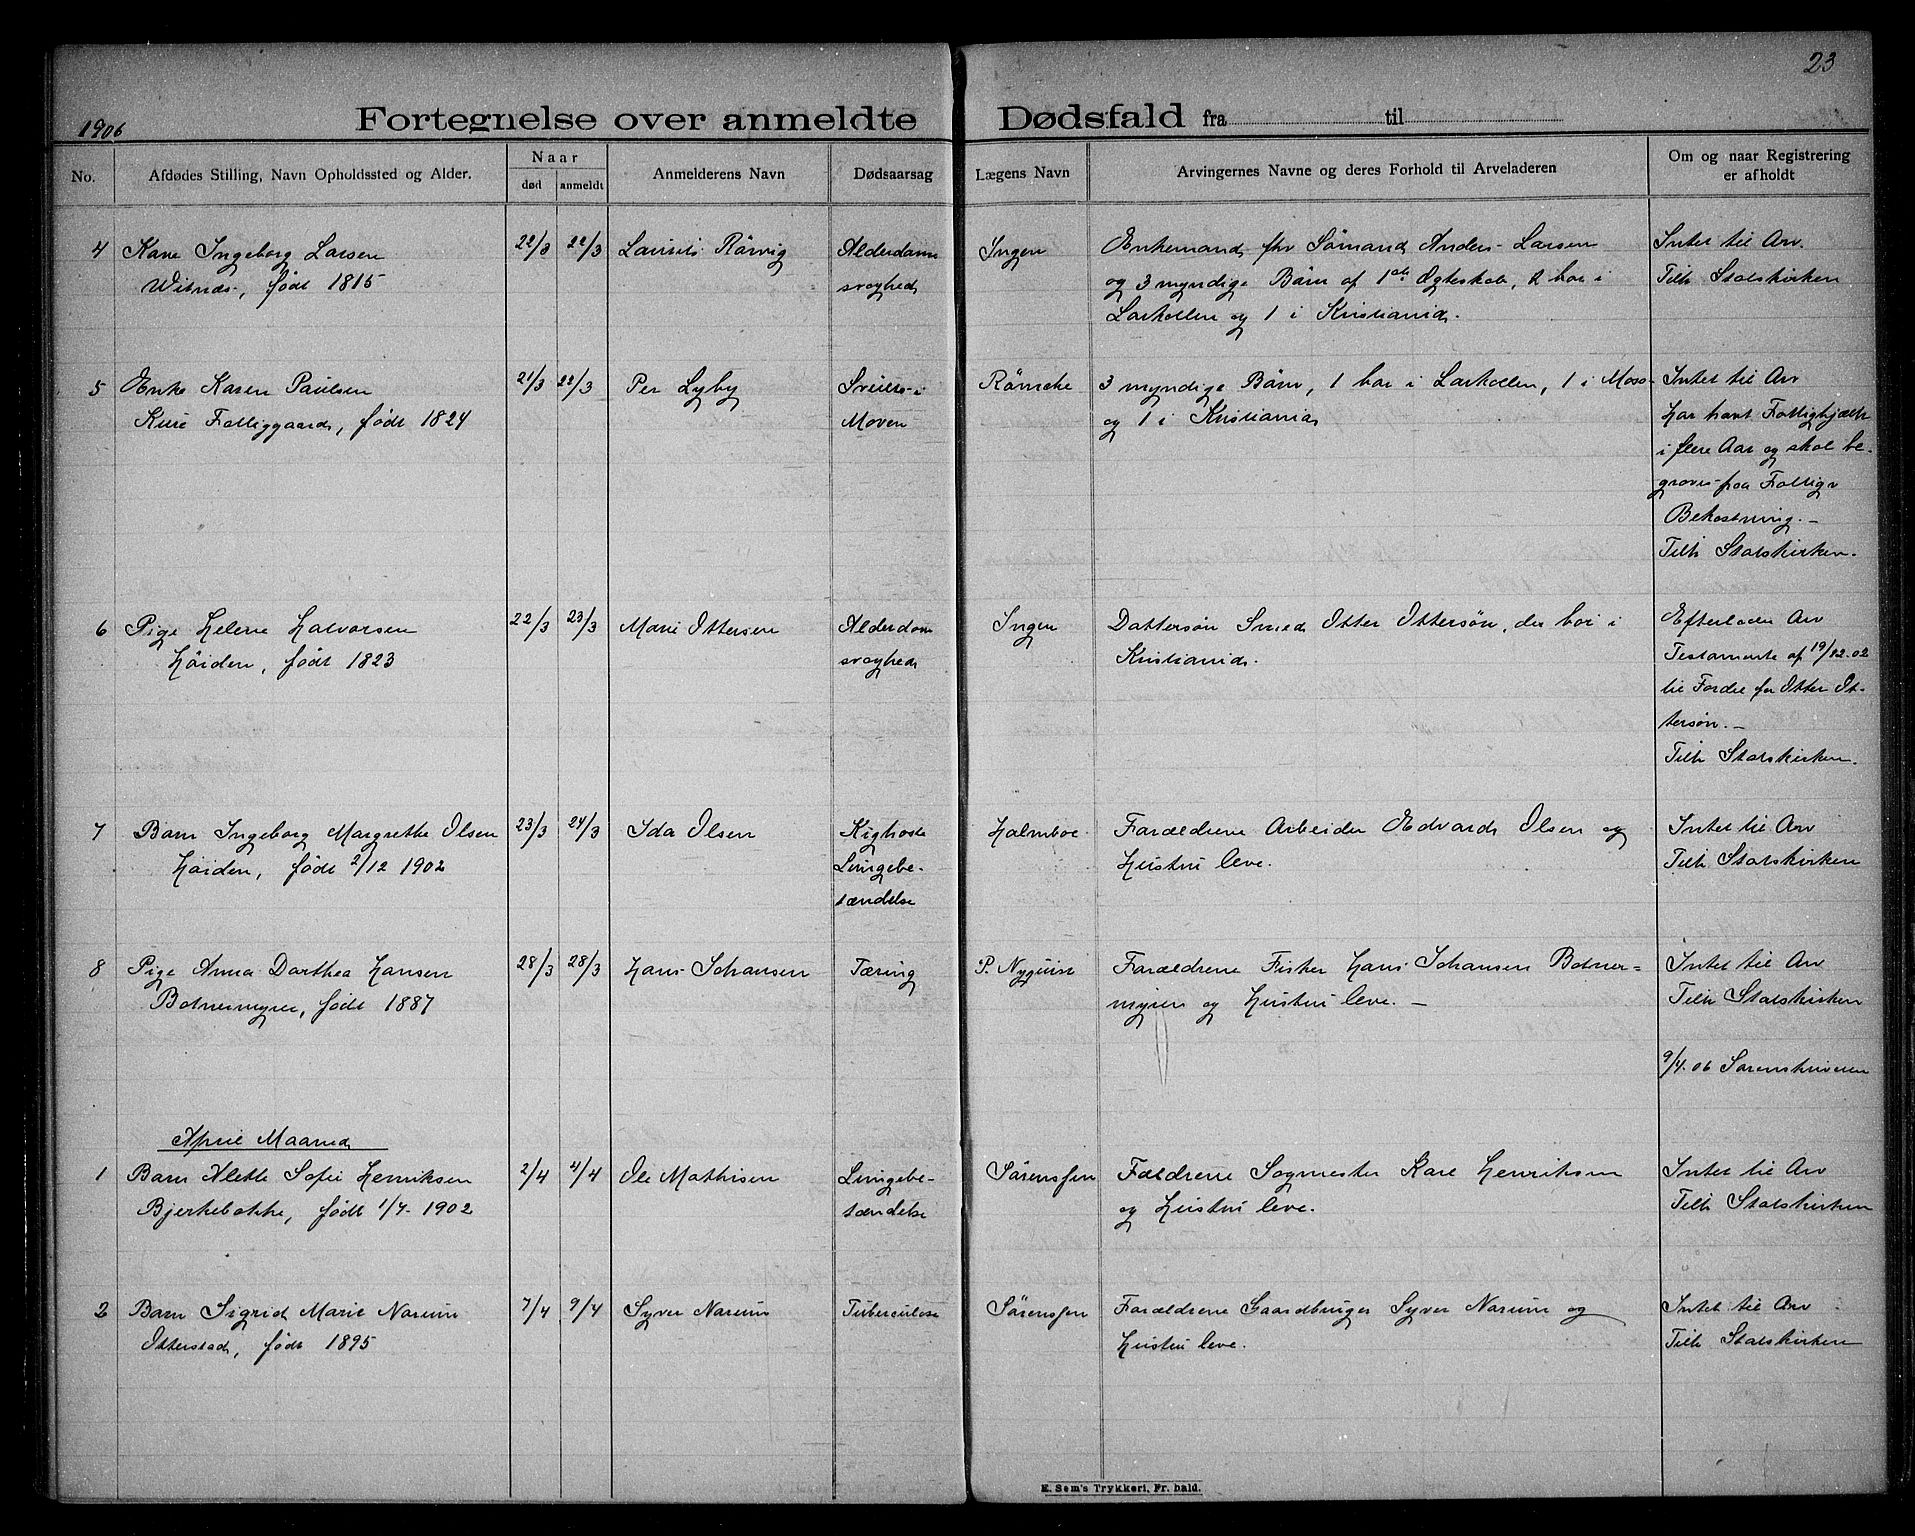 23
1906
Fortegnelse over anmeldte Dødsfald fra til
No.
Afdødes Stilling, Navn Opholdssted og Alder.
Naar
død
anmeldt
Anmelderens Navn
Dødsaarsag
Lægens Navn
Arvingernes Navne og deres Forhold til Arveladeren
Om og naar Registrering
er afholdt
4
Kone Ingeborg Larsen
Witnæs, født 1815
22/3
22/3
Laurits Rörvig
Alderdoms
svaghed
Ingen
Enkemand fhv Sömand Anders Larsen
og 3 myndige Börn af 1ste Ægteskab, 2 bor i
Larkollen og 1 i Kristiania.
Intet til Arv.
Tilh Statskirken
5
Enke Karen Paulsen
Kure Fattiggaard, født 1824
21/3
22/3
Per Lyby
i
Maven
Römcke
3 myndige Börn, 1 bor i Larkollen, 1 i Moss
og 1 i Kristiania
Intet til Arv
Har havt Fattighjælp
i flere Aar og skal be-
graves paa Fattigv
Bekostning. —
Tilh Statskirken.
6
Pige Helene Halvorsen
Höiden, født 1823
22/3
23/3
Marie Ottersen
Alderdom
svaghed
Ingen
Dattersön Smed Otter Ottersön, der bor i
Kristiania.
Efterlader Arv
Testamente af 19/12.02
til Fordel for Otter Ot-
tersön. —
Tilh Statskirken.
7
Barn Ingeborg Margrethe Olsen
Höiden, født 2/12 1902
23/3
24/3
Ida Olsen
Kighoste
Lungebe-
tændelse
Holmboe
Forældrene Arbeider Edvard Olsen og
Hustru leve.
Intet til Arv
Tilh Statskirken
8
Pige Anna Dorthea Hansen
Botnermyren, født 1887
28/3
28/3
Hans Johansen
Tæring
P. Nyquist
Forældrene Fisker Hans Johansen Botner=
myren og Hustru leve. —
Intet til Arv
Tilh Statskirken
9/4.06 Sorenskriveren
April Maaned
1
Barn Alette Sofie Henriksen
Bjerkebakke, født 1/4 1902
2/4
4/4
Ole Mathisen
Lungebe-
tændelse
Sörenssen
Fældrene Sagmester Karl Henriksen
og Hustru leve.
Intet til Arv
Tilh Statskirken
2
Barn Sigrid Marie Narum
Otterstad, født 1895
7/4
9/4
Syver Narum
Tuberculose
Sörenssen
Forældrene Gaardbruger Syver Narum og
Hustru leve.
Intet til Arv
Tilh Statskirken
E. Sem's Trykkeri, Fr. hald.